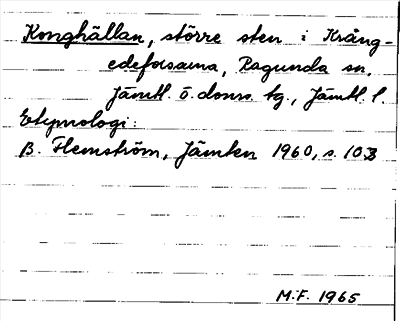 Konghällan, större sten i Krång-
edeforsarna, Ragunda sn,
Jämtl. ö. doms. tg., Jämtl. l.
Etymologi:
B. Flemström, Jämten 1960, s. 103
M.F. 1965